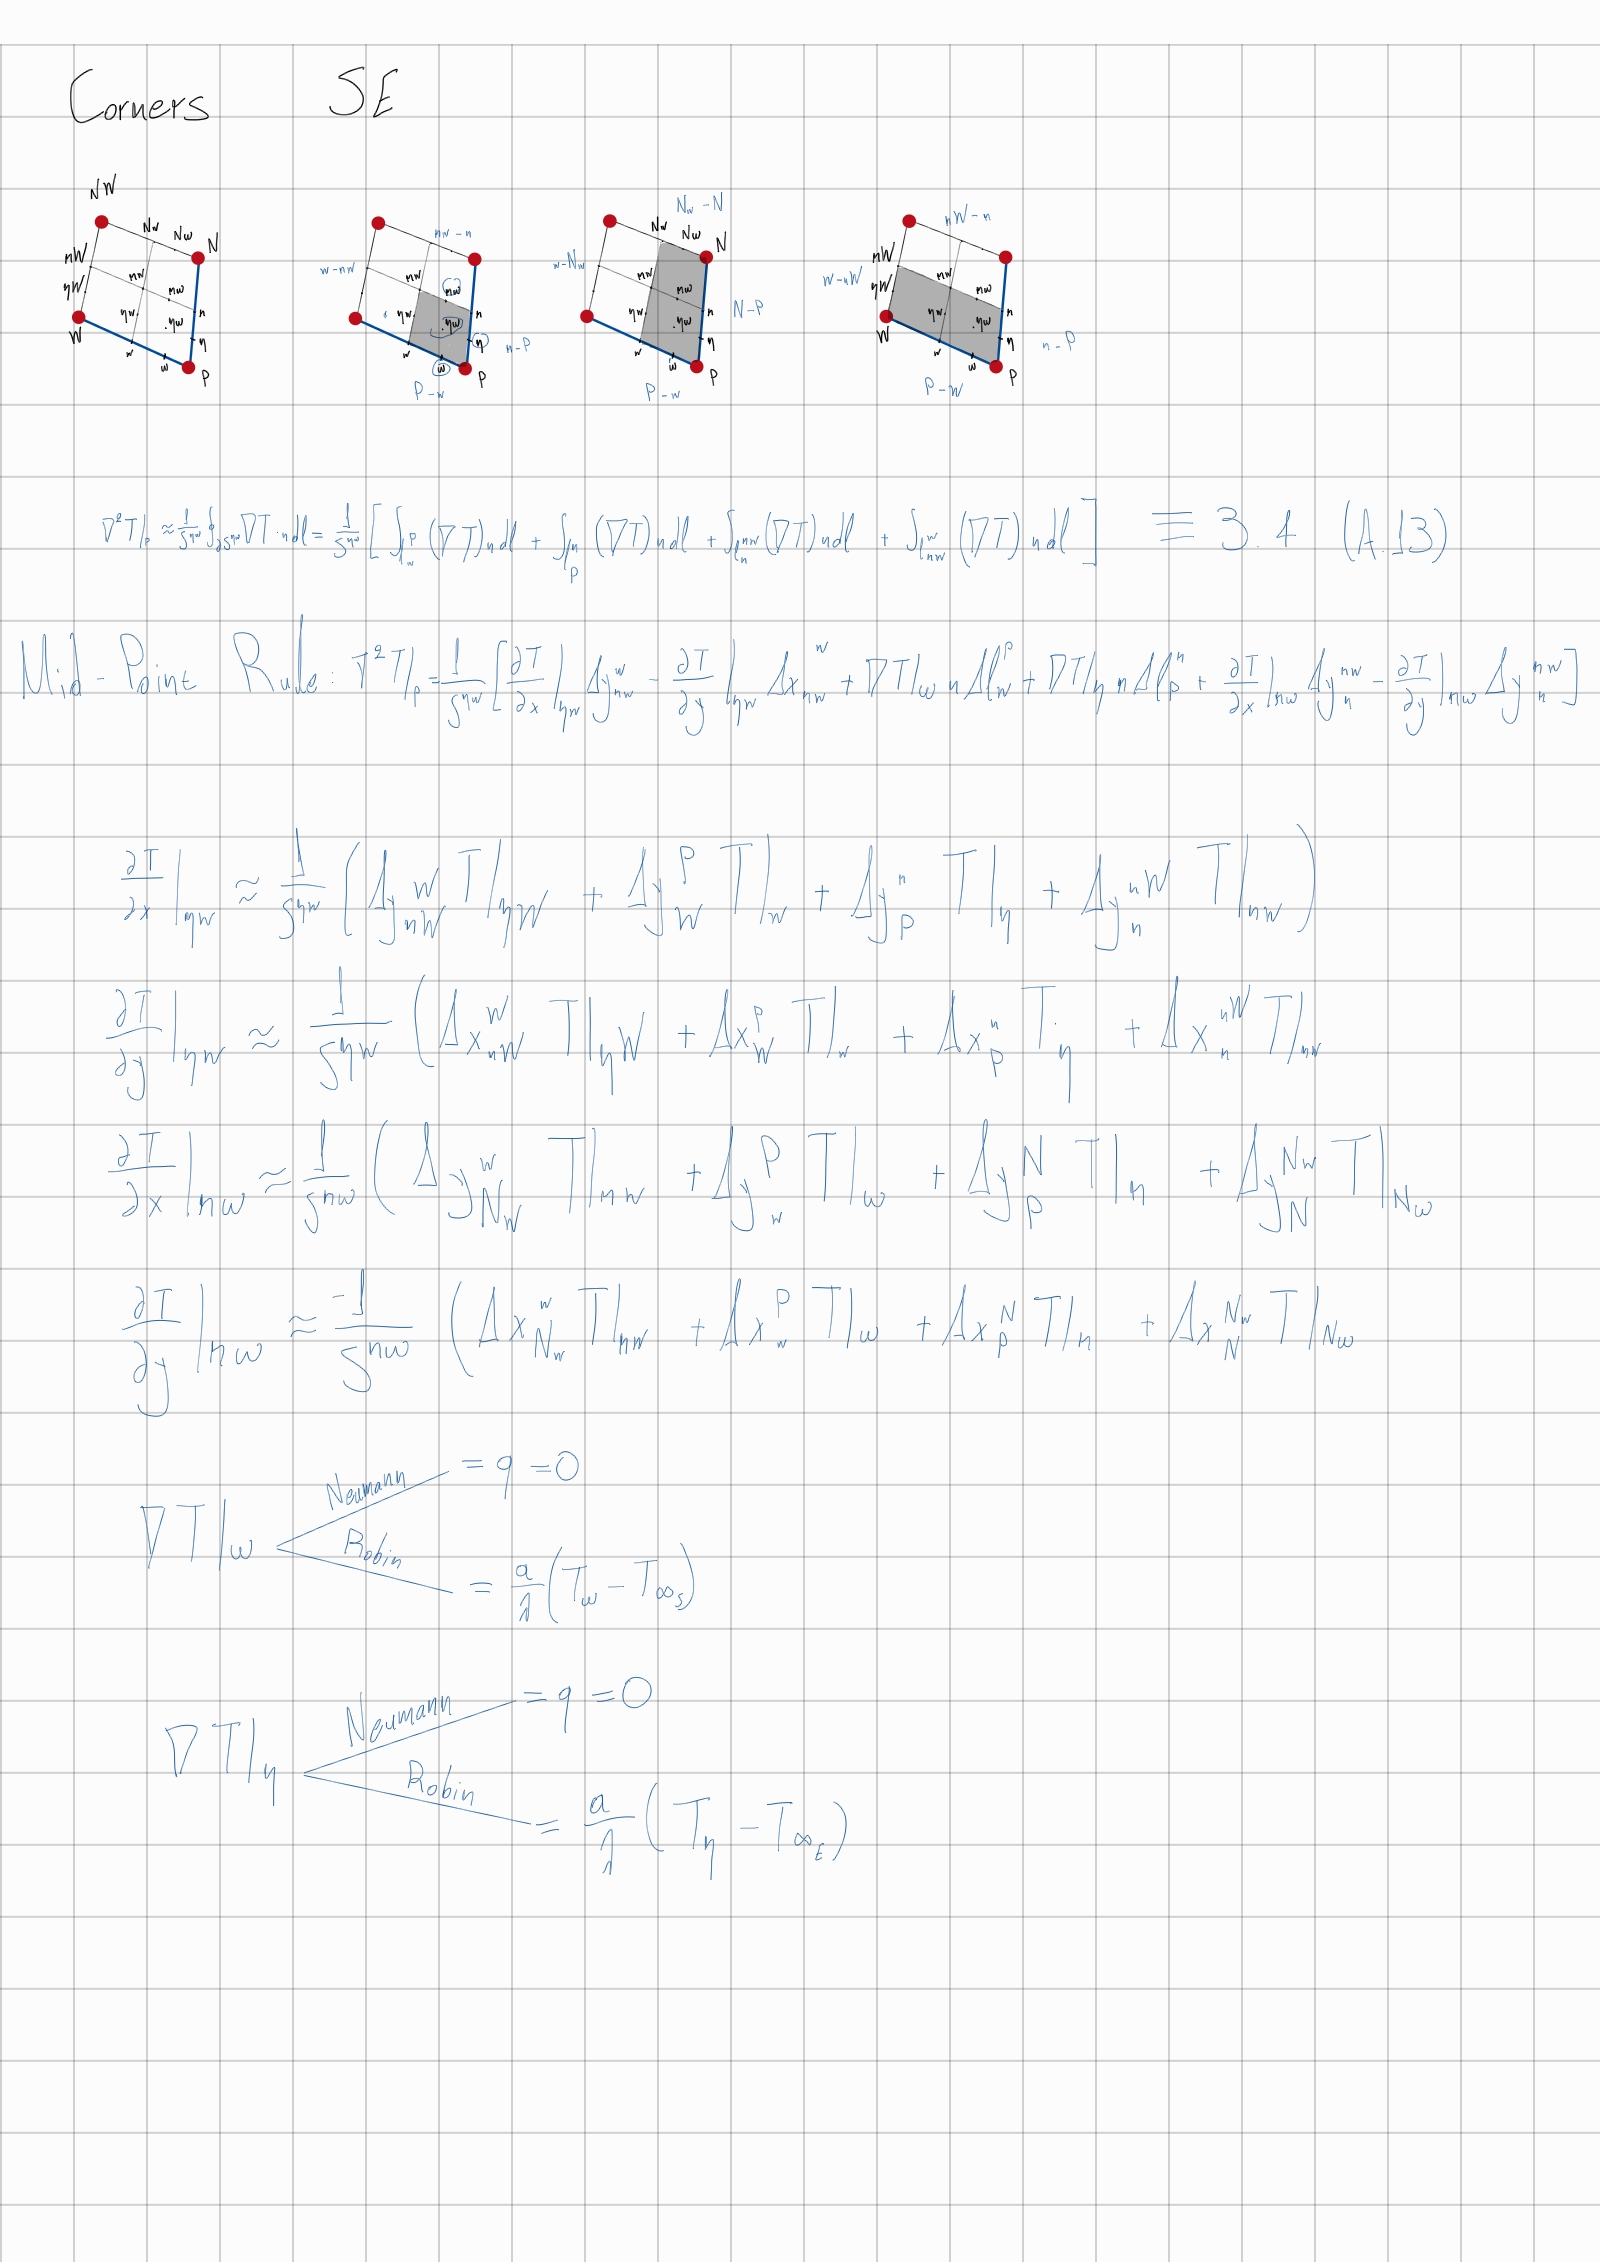 Corners SE
NW Nw Nω N nW ηW W nw nω ηw ηω n η w ω P
nw-n w-nw nw nω ηw ηω n η w ω P n-P P-w
Nw-N w-Nw Nw Nω N nw nω ηw ηω n η w ω P N-P P-w
nW-n W-nW nW ηW W nw nω ηw ηω n η w ω P n-P P-W
∇²T|_P ≈ 1/S^ηω ∮_∂S^ηω ∇T · n dl = 1/S^ηω [ ∫_{l_w^P} (∇T) n dl + ∫_{l_P^n} (∇T) n dl + ∫_{l_n^nw} (∇T) n dl + ∫_{l_nw^w} (∇T) n dl ] ≡ 3.4 (A.13)
Mid-Point Rule: ∇²T|_P = 1/S^ηω [ ∂T/∂x|_ηw Δy_nw^w - ∂T/∂y|_ηw Δx_nw^w + ∇T|_ω n Δl_w^P + ∇T|_η n Δl_P^n + ∂T/∂x|_nω Δy_n^nw - ∂T/∂y|_nω Δy_n^nw ]
∂T/∂x|_ηw ≈ 1/S^ηw ( Δy_nW^W T|_ηW + Δy_W^P T|_w + Δy_P^n T|_η + Δy_n^nW T|_nw )
∂T/∂y|_ηw ≈ 1/S^ηw ( Δx_nW^W T|_ηW + Δx_W^P T|_w + Δx_P^n T_η + Δx_n^nW T|_nw )
∂T/∂x|_nω ≈ 1/S^nω ( Δy_Nw^w T|_nw + Δy_w^P T|_ω + Δy_P^N T|_n + Δy_N^Nw T|_Nω )
∂T/∂y|_nω ≈ -1/S^nω ( Δx_Nw^w T|_nw + Δx_w^P T|_ω + Δx_P^N T|_n + Δx_N^Nw T|_Nω )
Neumann = q = 0
∇T|_ω
Robin = a/λ (T_ω - T_∞S)
Neumann = q = 0
∇T|_η
Robin = a/λ (T_η - T_∞E)